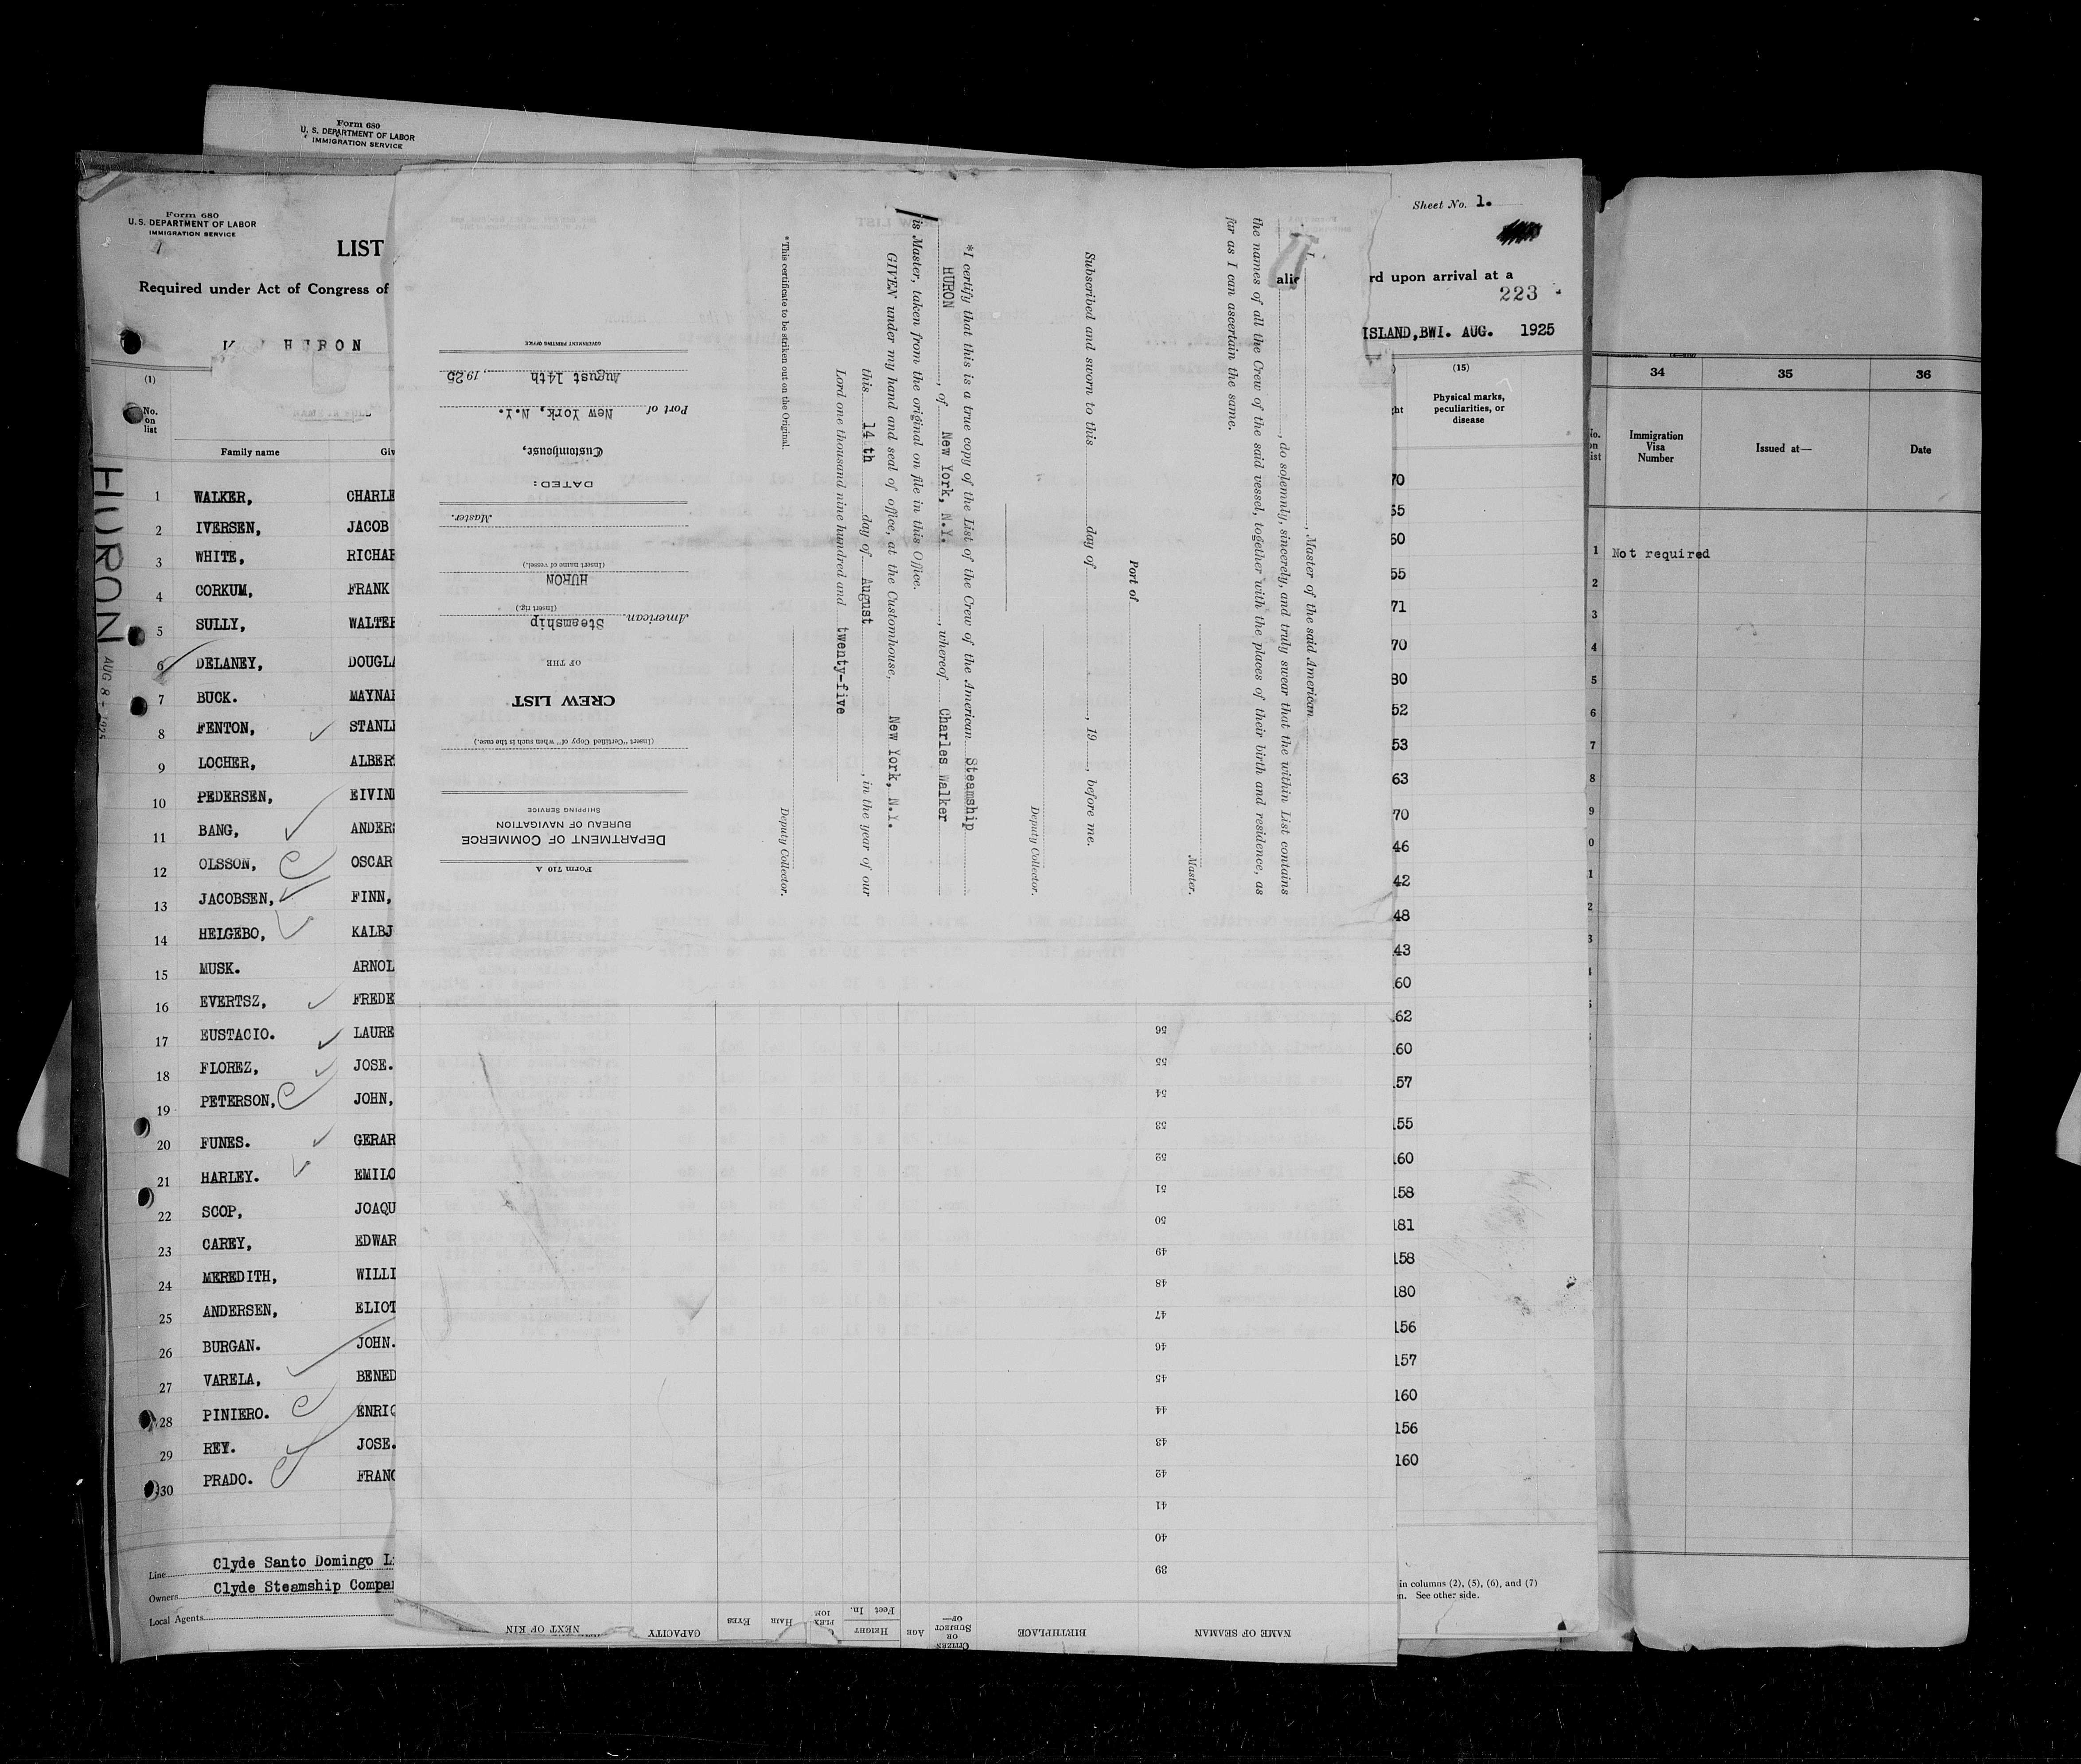 Form 680
U. S. DEPARTMENT OF LABOR
IMMIGRATION SERVICE
Form 680
U. S. DEPARTMENT OF LABOR
IMMIGRATION SERVICE
LIST
Required under Act of Congress of
HURON
(1)
No. on list
Family name
Giv
HURON
AUG 8 - 1925
1 WALKER, CHARLE
2 IVERSEN, JACOB
3 WHITE, RICHAR
4 CORKUM, FRANK
5 SULLY, WALTER
6 DELANEY, DOUGLA
7 BUCK. MAYNAR
8 FENTON, STANLE
9 LOCHER, ALBER
10 PEDERSEN, EIVIN
11 BANG, ANDER
12 OLSSON, OSCAR
13 JACOBSEN, FINN,
14 HELGEBO, KALBJ
15 MUSK. ARNOL
16 EVERTSZ, FREDE
17 EUSTACIO. LAURE
18 FLOREZ, JOSE.
19 PETERSON, JOHN,
20 FUNES. GERAR
21 HARLEY. EMILO
22 SCOP, JOAQU
23 CAREY, EDWAR
24 MEREDITH, WILLI
25 ANDERSEN, ELIOT
26 BURGAN. JOHN.
27 VARELA, BENED
28 PINIERO. ENRIC
29 REY. JOSE.
30 PRADO. FRANC
Line Clyde Santo Domingo Li
Owners Clyde Steamship Compan
Local Agents
Form 710 A
DEPARTMENT OF COMMERCE
BUREAU OF NAVIGATION
SHIPPING SERVICE
(Insert "Certified Copy of" when such is the case.)
CREW LIST
OF THE
American Steamship
(Insert rig.)
HURON
(Insert name of vessel.)
Master.
DATED:
Customhouse,
Port of New York, N.Y.
August 14th, 1925
GOVERNMENT PRINTING OFFICE
I,
, Master of the said American
, do solemnly, sincerely, and truly swear that the within List contains
the names of all the Crew of the said vessel, together with the places of their birth and residence, as
far as I can ascertain the same.
Master.
Port of
Subscribed and sworn to this day of , 19 , before me.
Deputy Collector.
*I certify that this is a true copy of the List of the Crew of the American Steamship
HURON , of New York, N.Y. , whereof Charles Walker
is Master, taken from the original on file in this Office.
GIVEN under my hand and seal of office, at the Customhouse, New York, N.Y.
this 14th day of August , in the year of our
Lord one thousand nine hundred and twenty-five
Deputy Collector.
*This certificate to be striken out on the Original.
NAME OF SEAMAN
BIRTHPLACE
CITIZEN OR SUBJECT OF—
AGE
HEIGHT
Feet In.
HAIR
EYES
CAPACITY
NEXT OF KIN
39
40
41
42
43
44
45
46
47
48
49
50
51
52
53
54
55
56
Sheet No. 1.
alie
rd upon arrival at a
223
ISLAND,BWI. AUG. 1925
(15)
ht
Physical marks, peculiarities, or disease
70
55
60
55
71
70
80
52
53
63
70
46
42
48
43
60
62
60
57
55
160
158
181
158
180
156
157
160
156
160
in columns (2), (5), (6), and (7)
n. See other side.
34
35
36
No. on list
Immigration Visa Number
Issued at—
Date
1 Not required
2
3
4
5
6
7
8
9
0
1
2
3